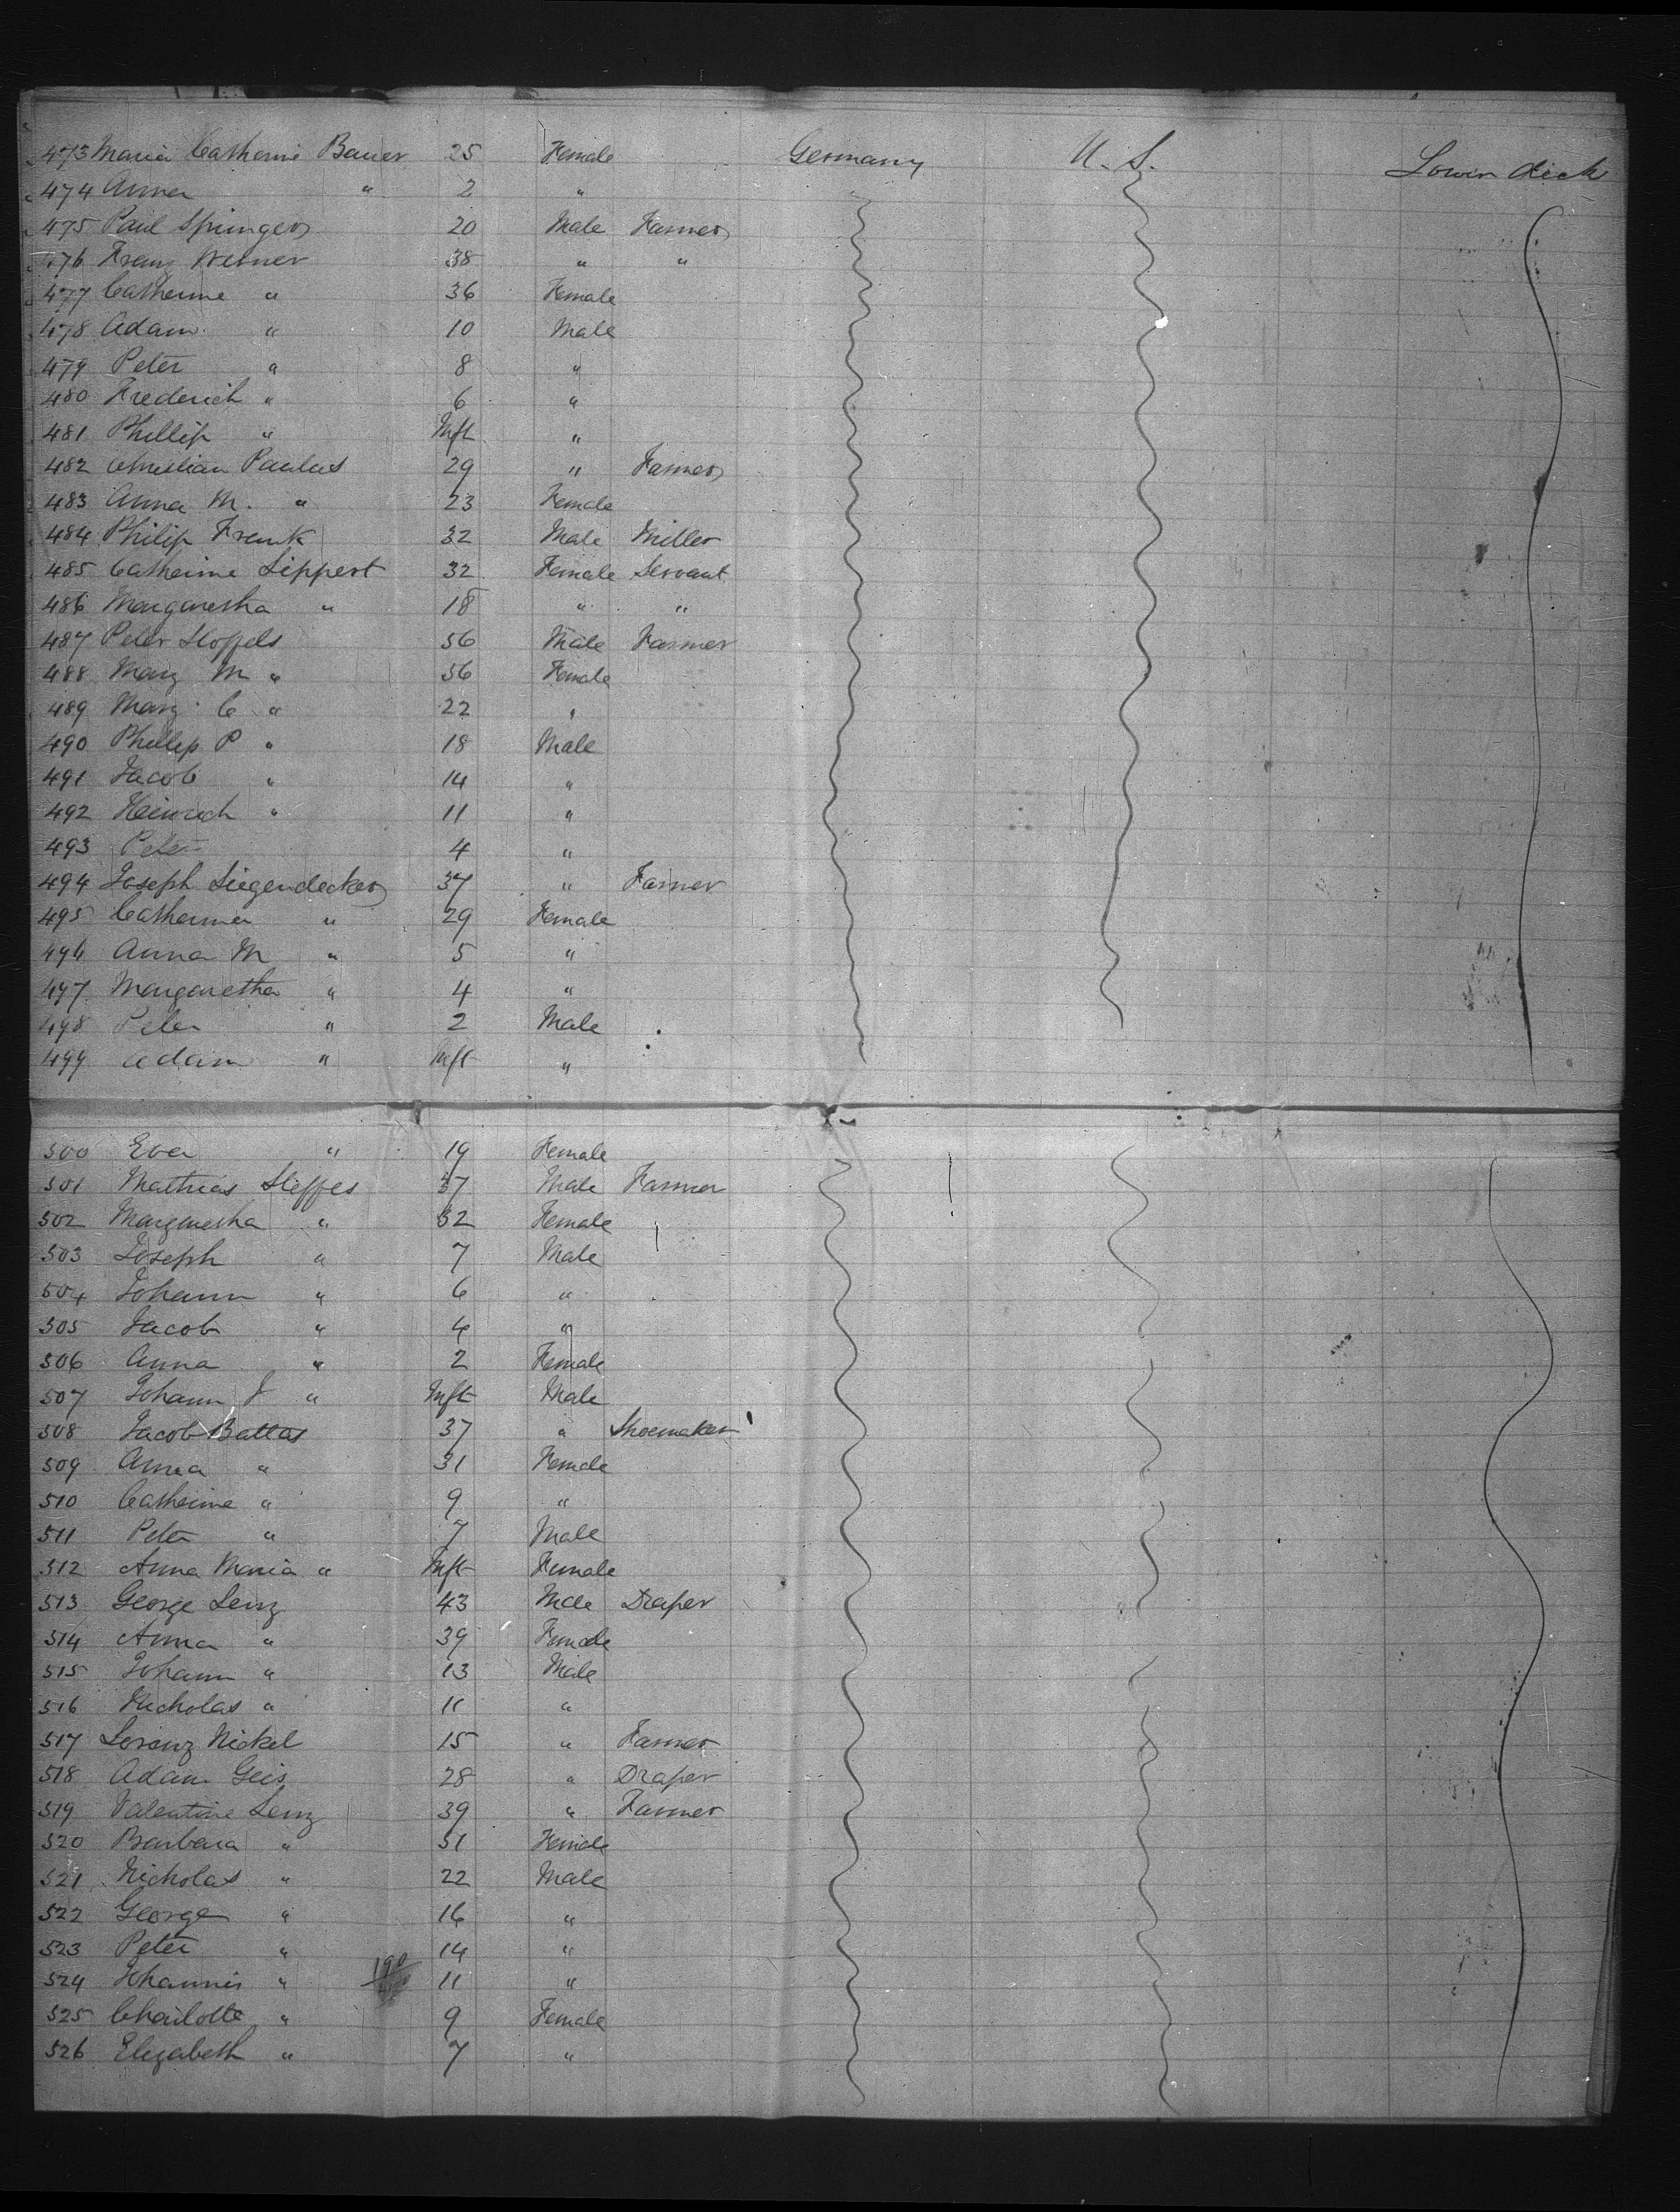 473 Maria Catherine Bauer 25 Female Germany U. S. Lower deck
474 Anna " 2 "
475 Paul Springer 20 Male Farmer
476 Franz Werner 38 " "
477 Catherine " 36 Female
478 Adam " 10 Male
479 Peter " 8 "
480 Frederich " 6 "
481 Phillip " Inft "
482 Christian Paulus 29 " Farmer
483 Anna M. " 23 Female
484 Philip Frank 32 Male Miller
485 Catherine Lippert 32 Female Servant
486 Margaretha " 18 " "
487 Peter Stoffels 56 Male Farmer
488 Marg M " 56 Female
489 Marg C " 22 "
490 Phillip P " 18 Male
491 Jacob " 14 "
492 Heinrich " 11 "
493 Peter 4 "
494 Joseph Liegendecker 37 " Farmer
495 Catherina " 29 Female
496 Anna M " 5 "
497 Margaretha " 4 "
498 Peter " 2 Male
499 Adam " Inft "
500 Eva " 19 Female
501 Mathias Steffes 37 Male Farmer
502 Margaretha " 32 Female
503 Joseph " 7 Male
504 Johann " 6 "
505 Jacob " 4 "
506 Anna " 2 Female
507 Johann J " Inft Male
508 Jacob Battas 37 " Shoemaker
509 Anna " 31 Female
510 Catherine " 9 "
511 Peter " 7 Male
512 Anna Maria " Inft Female
513 George Lenz 43 Male Draper
514 Anna " 39 Female
515 Johann " 13 Male
516 Nicholas " 11 "
517 Lorenz Nickel 15 " Farmer
518 Adam Geis 28 " Draper
519 Valentine Lenz 39 " Farmer
520 Barbara " 51 Female
521 Nicholas " 22 Male
522 George " 16 "
523 Peter " 14 "
524 Johannes " 190 11 "
525 Charlotte " 9 Female
526 Elizabeth " 7 "